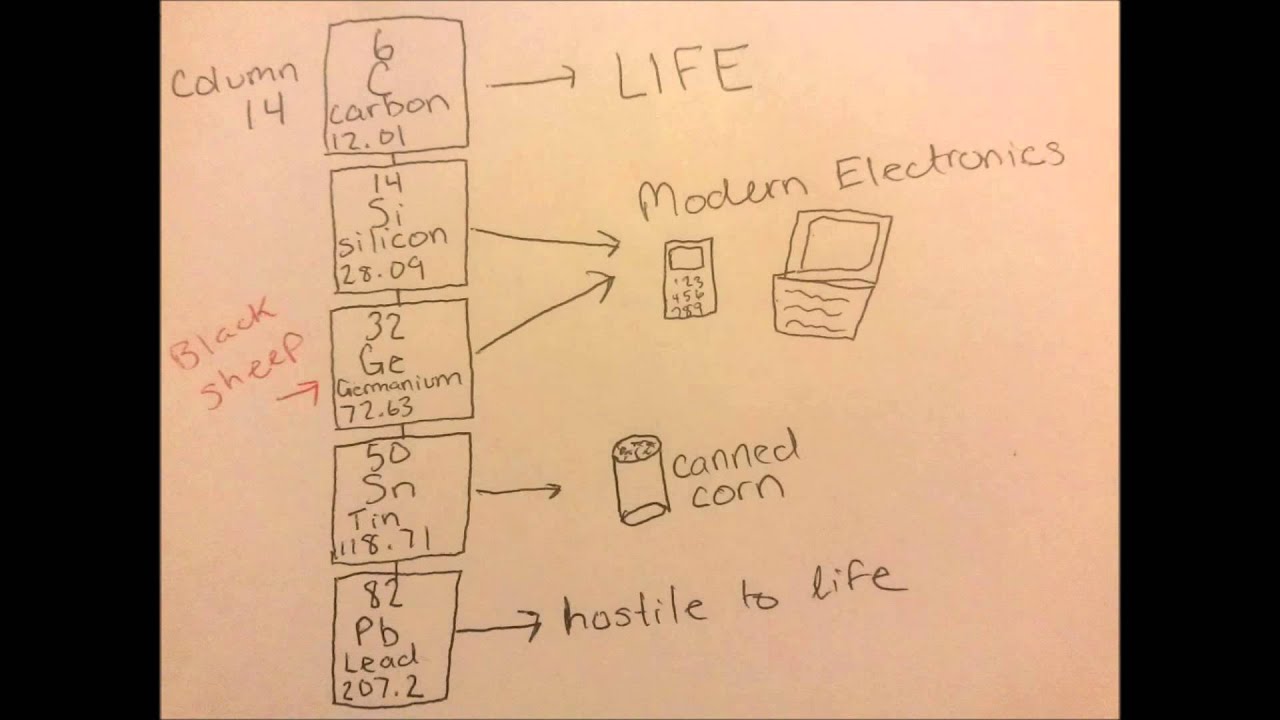 Column
14
6
C
carbon
12.01
LIFE
14
Si
silicon
28.09
Modern Electronics
123
456
789
Black
sheep
32
Ge
Germanium
72.63
50
Sn
Tin
118.71
canned
corn
82
Pb
Lead
207.2
hostile to life